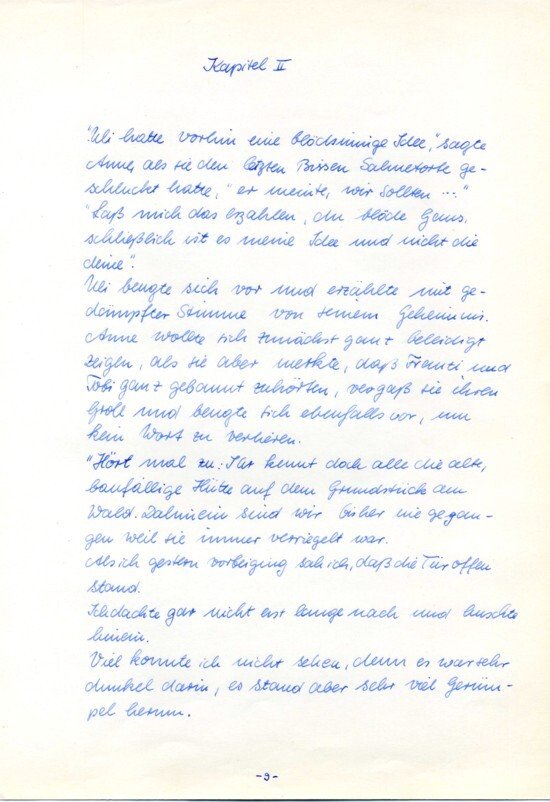 Kapitel II
"Uli hatte vorhin eine blödsinnige Idee," sagte
Anne, als sie den letzten Bissen Sahnetorte ge-
schluckt hatte, "er meinte, wir sollten ..."
"Laß mich das erzählen, du blöde Gans,
schließlich ist es meine Idee und nicht die
deine".
Uli beugte sich vor und erzählte mit ge-
dämpfter Stimme von seinem Geheimnis.
Anne wollte sich zunächst ganz beleidigt
zeigen, als sie aber merkte, daß Franzi und
Tobi ganz gebannt zuhörten, vergaß sie ihren
Groll und beugte sich ebenfalls vor, um
kein Wort zu verlieren.
"Hört mal zu: Ihr kennt doch alle die alte,
baufällige Hütte auf dem Grundstück am
Wald. Dahinein sind wir bisher nie gegan-
gen weil sie immer verriegelt war.
Als ich gestern vorbeiging sah ich, daß die Tür offen
stand.
Ich dachte gar nicht erst lange nach und huschte
hinein.
Viel konnte ich nicht sehen, denn es war sehr
dunkel darin, es stand aber sehr viel Gerüm-
pel herum.
-9-